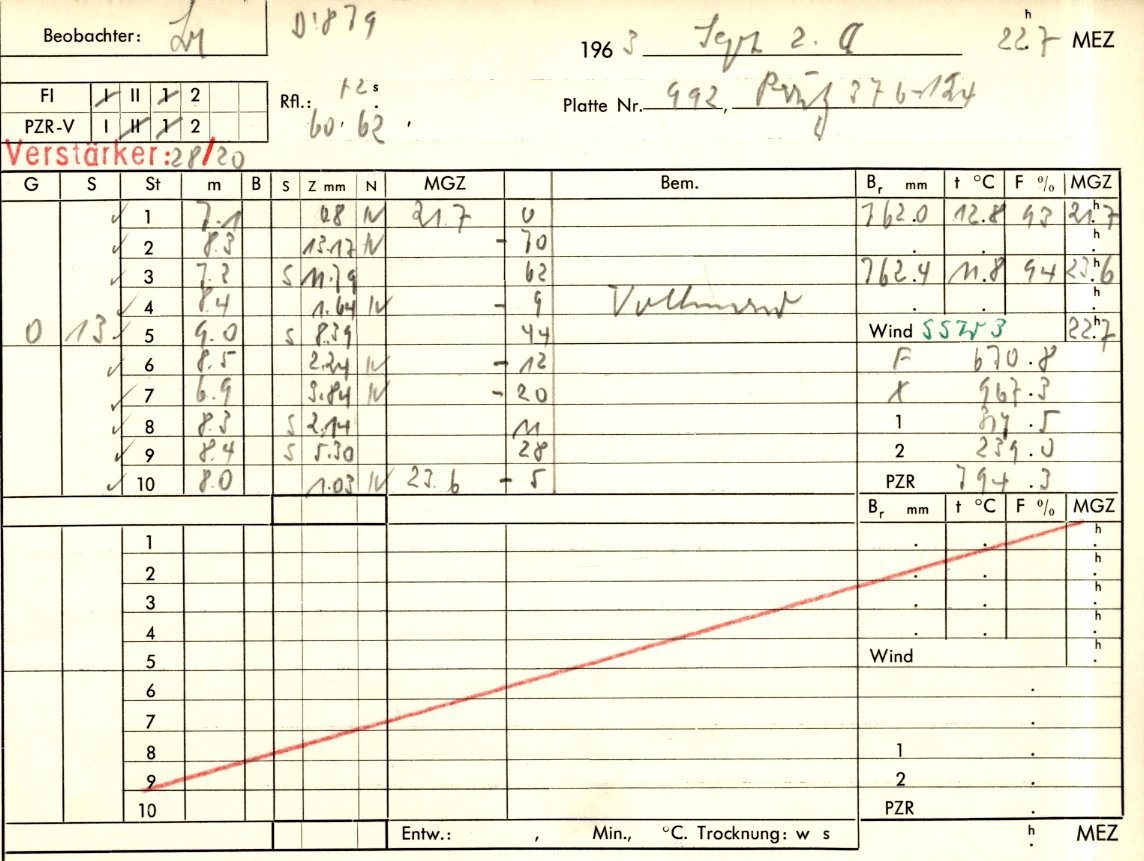 Beobachter:
D: 879
1963 Sept 2. 22.7 h MEZ
FI I II 1 2
PZR-V I II 1 2
Rfl.: s
60. 62.
Platte Nr. 992, 376-124
Verstärker: 28/20
G S St m B S Z mm N MGZ Bem. Br mm t °C F % MGZ
1 7.1 0.8 N 21.7 0 762.0 12.8 93 21.7 h
2 8.3 13.17 N - 70 . . h
3 7.2 S 11.79 62 762.4 11.8 94 23.6 h
4 8.4 1.64 N - 9 Vollmond . . h
0 13 5 9.0 S 8.39 44 Wind SSW 3 22.7 h
6 8.5 2.24 N - 12 F 670.8
7 6.9 3.84 N - 20 X 967.3
8 8.3 S 2.14 11 1 .5
9 8.4 S 5.30 28 2 239.0
10 8.0 1.03 N 23.6 - 5 PZR 794.3
Br mm t °C F % MGZ
1 . . h
2 . . h
3 . . h
4 . . h
5 Wind h
6 .
7 .
8 1 .
9 2 .
10 PZR .
Entw.: , Min., °C. Trocknung: w s h MEZ